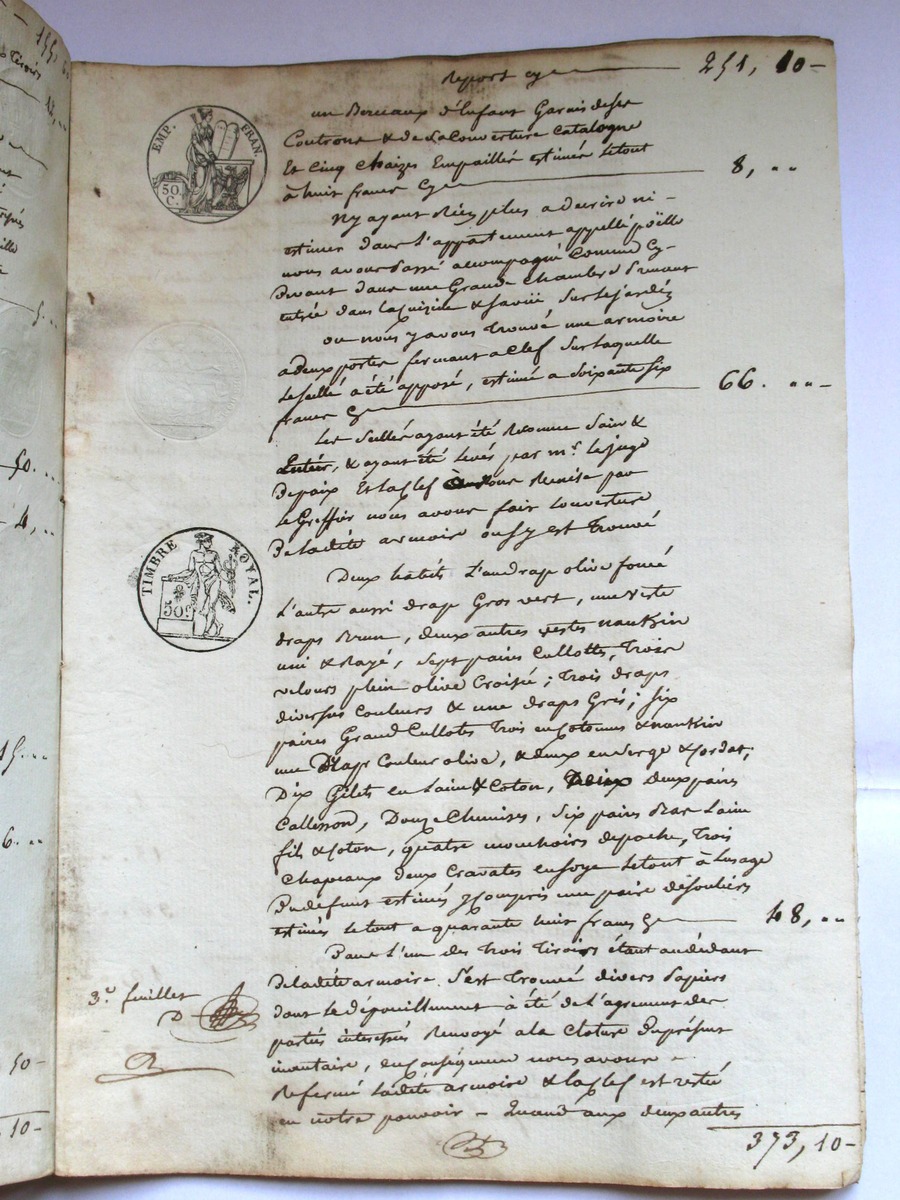 Report cy 251, 10-
EMP. FRAN.
50
C.
un Berceaux d'Enfant Garnis de ses
Coutrons & de sa Couverture Catalogne
Et Cinq Chaizes Empaillée estimés le tout
à huit francs Cy 8, ..
N'y ayant Rien plus a decrire ni -
estimer dans l'appartement appellé poëlle
nous avons passé acompagné Comme Cy-
devant dans une Grande Chambre prenant
entrée dans la Cuizine & Javiü sur le jardin
ou nous y avons Trouvé une armoire
a deux portes fermant a Clef sur laquelle
le seellé a été apposé, estimé a Soixante six
francs Cy 66. ..-
Les seellés ayant été Reconnu Sain &
Entier, & ayant été levés par mr. le juge
de paix Et la Clef nous Remise par
le Greffier nous avons fait l'ouverture
de ladite armoire ou s'y est Trouvé
TIMBRE ROYAL.
50c
Deux habits L'un drap olive foncé
L'autre aussi drap Gros vert, une veste
draps Brun, deux autres vestes nankin
uni & Rayé, Sept paires Cullottes, Trois
velours plein olive Croisée; Trois draps
diverses Couleurs & une draps Gris; Six
paires Grand Cullotes Trois en Cotonnes & nankin
une Drap Couleur olive, & deux en Serge & Cordat;
Dix Gilets en Laine & Coton, deux pairs
Callesson, Douze Chemises, Six pairs Bas Laine
fil & Coton, quatre mouchoirs de poche, Trois
Chapeaux deux Cravates en soye le tout à l'usage
du défunt estimés y Compris une paire de souliers
estimés le tout a quarante huit francs Cy 48, ..
Dans L'un des trois Tiroirs étant au dédant
de ladite armoire. S'est Trouvé divers papiers
dont le dépouillement à été de l'agrement des
parties intéressés Renvoyé a la Cloture du présent
inventaire, en Conséquence nous avons -
Refermé ladite armoire & la Clef est restée
en notre pouvoir - Quand aux deux autres
3e. feuillet
D
373, 10-